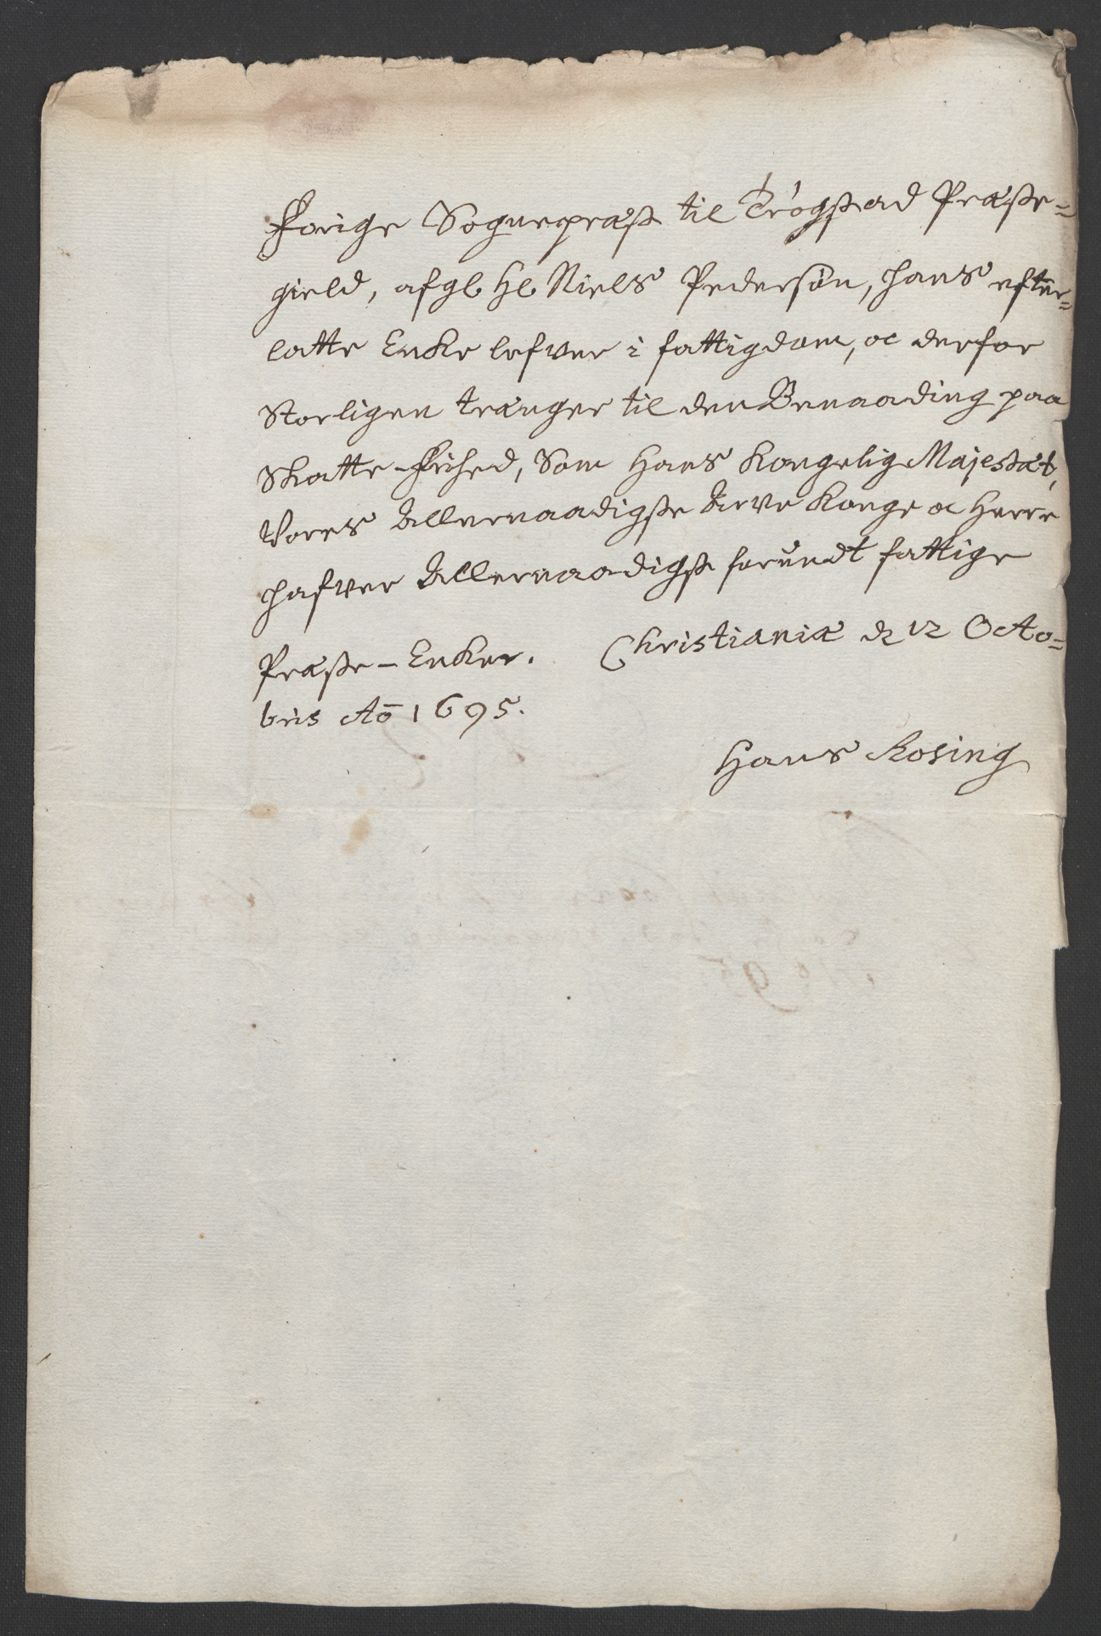 Forige Sognepræst til Trögstad Præste-
gield, afgl Hl Niels Pedersön, hans efter-
latte Enke lefver i fattigdom, oc derfor
Storligen trænger til den Benaading paa
Skatte-Frihed, Som Hans Kongelig Majestæt,
Vores Allernaadigste Arve Konge oc Herre
hafver Allernaadigst forundt fattige
Præste-Enker. Christianiæ d 12 Octo-
bris Aõ 1695.
Hans Rosing